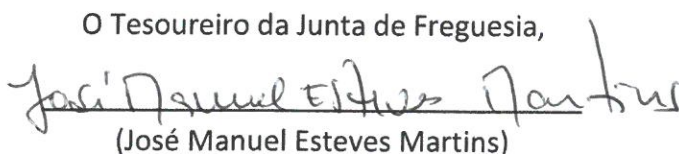 O Tesoureiro da Junta de Freguesia,
José Manuel Esteves Martins
(José Manuel Esteves Martins)